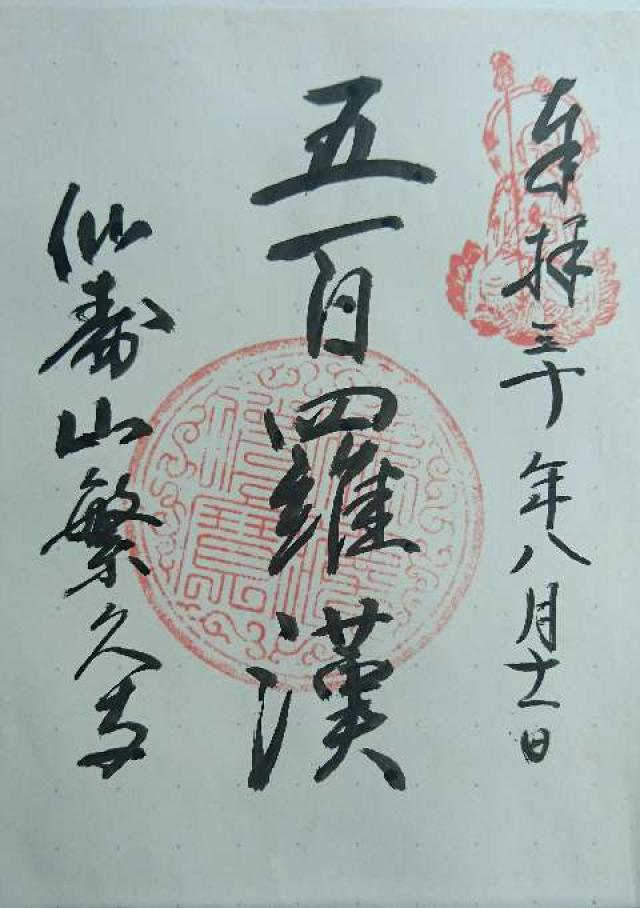 奉拝 三十年八月十一日
五百羅漢
仙壽山繁久寺